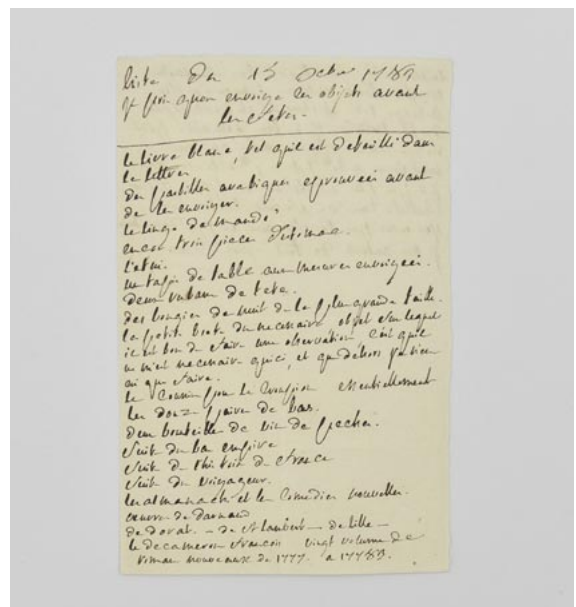 liste Du 15 Octbre 1783
je prie qu'on envoye les objets avant
les fetes.
le livre blanc, tel qu'il est detaillé dans
la lettre
des pastilles aromatiques eprouvées avant
de les envoyer.
le linge demandé
encor trois pieces d'estomac.
l'etui.
un tapis de table aux mesures envoyées.
deux rubans de tete.
des bougies de nuit de la plus grande taille.
la petite brosse du necessaire objet sur lequel
il est bon de faire une observation c'est qu'il
ne m'est necessaire qu'ici, et que dehors je n'en
ai que faire.
le essentiellement
les douze paires de bas.
deux bouteilles de vin de pecher.
suite du bas empire
suite de l'histoire de france
suite du voyageur.
les almanachs et les Comedies nouvelles.
œuvres de darnaud
de dorat. - de St lambert - de lille -
le decameron francois vingt volumes de
romans nouveaux de 1777. a 1783.